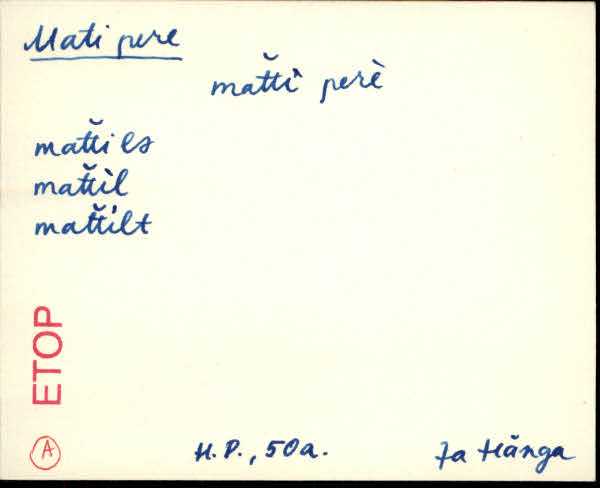 Mati pere
mat̆ti̇̀ perè
mat̆ti es
mat̆tìl
mat̆tìlt
ETOP
A
H.P., 50a.
Ja Hänga